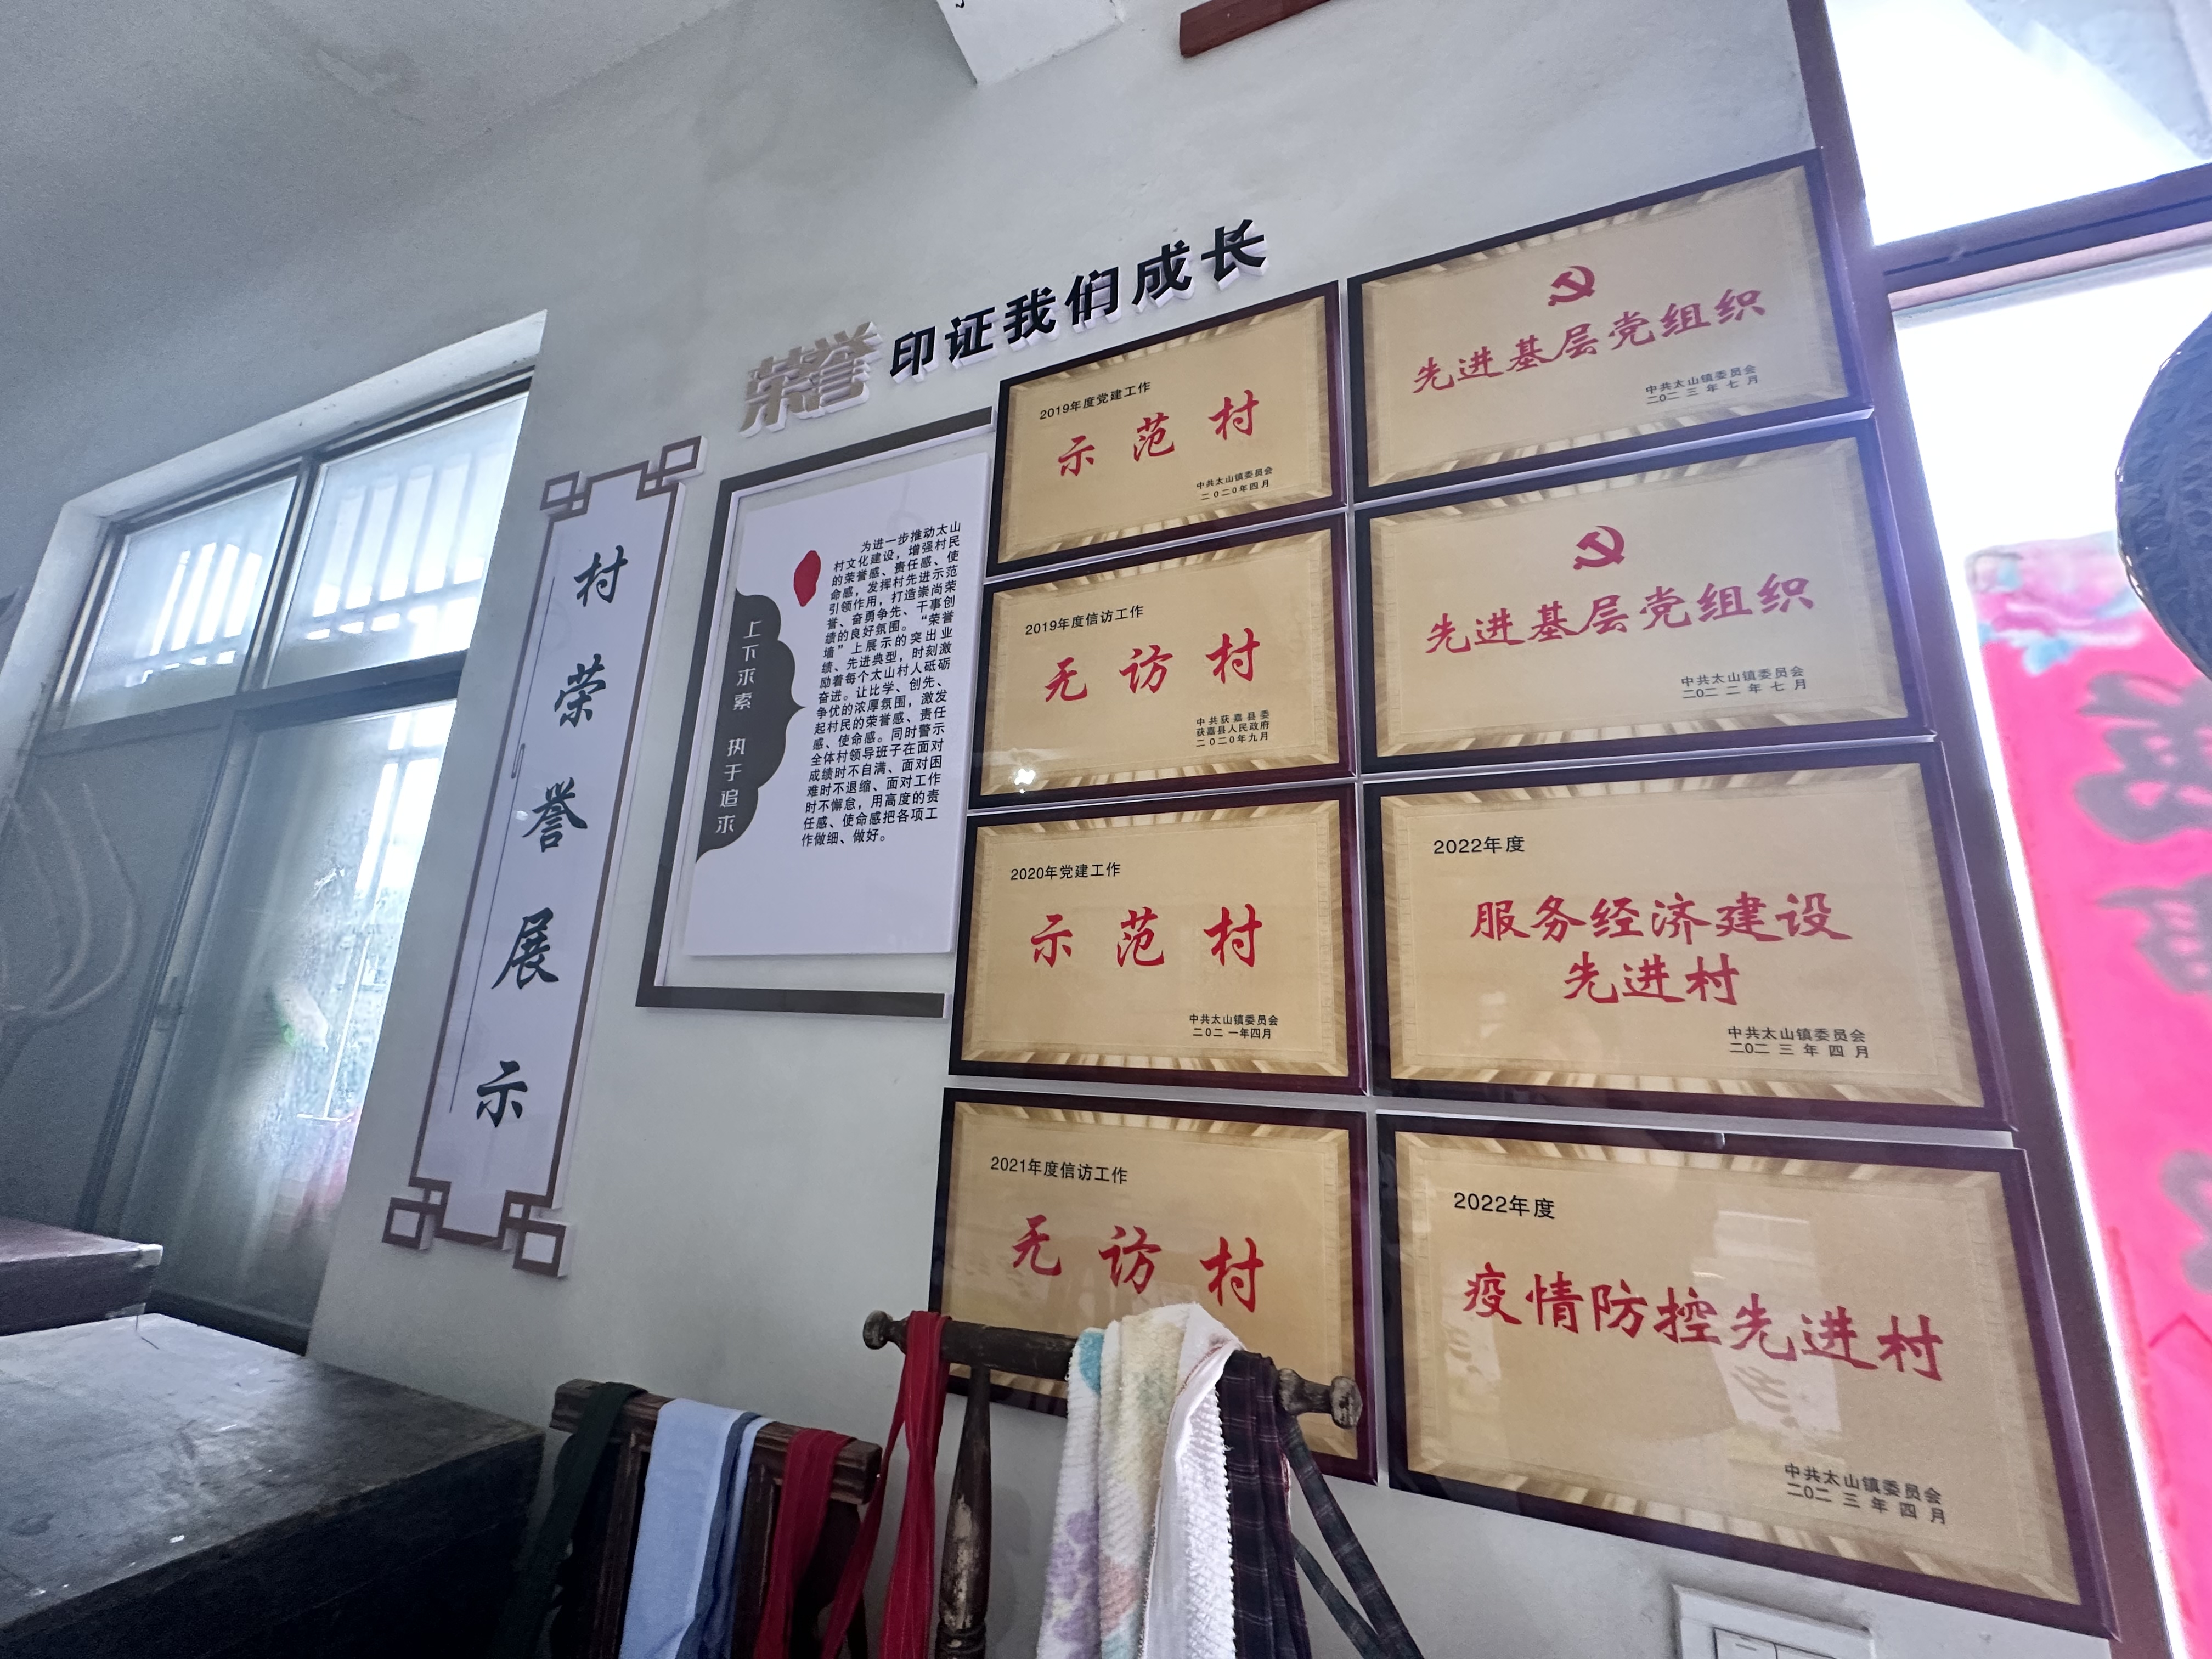 荣誉 印证我们成长
村荣誉展示
上下求索 执于追求
为进一步推动太山
村文化建设，增强村民
的荣誉感、责任感、使
命感，发挥村先进示范
引领作用，打造崇尚荣
誉、奋勇争先、干事创
绩的良好氛围。“荣誉
墙”上展示的突出业
绩、先进典型，时刻激
励着每个太山村人砥砺
奋进。让比学、创先、
争优的浓厚氛围，激发
起村民的荣誉感、责任
感、使命感。同时警示
全体村领导班子在面对
成绩时不自满、面对困
难时不退缩、面对工作
时不懈怠，用高度的责
任感、使命感把各项工
作做细、做好。
2019年度党建工作
示范村
中共太山镇委员会
二0二0年四月
2019年度信访工作
无访村
中共获嘉县委
获嘉县人民政府
二0二0年九月
2020年党建工作
示范村
中共太山镇委员会
二0二一年四月
2021年度信访工作
无访村
先进基层党组织
中共太山镇委员会
二0二三年七月
先进基层党组织
中共太山镇委员会
二0二二年七月
2022年度
服务经济建设
先进村
中共太山镇委员会
二0二三年四月
2022年度
疫情防控先进村
中共太山镇委员会
二0二三年四月